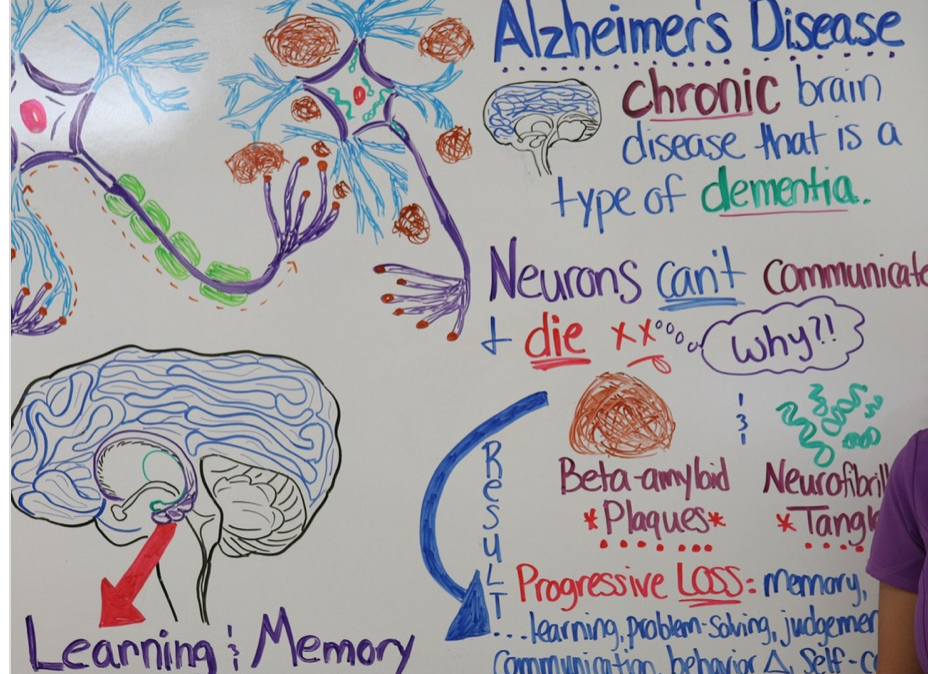 Alzheimer's Disease
chronic brain
disease that is a
type of dementia.
Neurons can't communicate
+ die xx
Why?!
&
Beta-amyloid
*Plaques*
Neurofibrill
*Tangl
RESULT
Progressive LOSS: memory,
...learning, problem-solving, judgemen
communication, behavior Δ, self-c
Learning & Memory